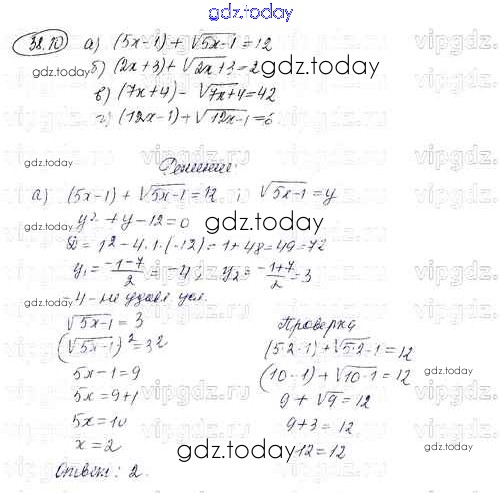 gdz.today
38.10 а) (5x-1) + √5x-1 = 12
б) (2x+3) + √2x+3 = 2
в) (7x+4) - √7x+4 = 42
г) (12x-1) + √12x-1 = 6
Решение:
а) (5x-1) + √5x-1 = 12 ; √5x-1 = y
y² + y - 12 = 0
D = 1² - 4·1·(-12) = 1 + 48 = 49 = 7²
y₁ = (-1-7)/2 = -4 ; y₂ = (-1+7)/2 = 3
-4 - не удовл. усл.
√5x-1 = 3
(√5x-1)² = 3²
5x-1 = 9
5x = 9+1
5x = 10
x = 2
Ответ: 2.
Проверка
(5·2-1) + √5·2-1 = 12
(10-1) + √10-1 = 12
9 + √9 = 12
9+3 = 12
12 = 12
gdz.today
gdz.today
gdz.today
gdz.today
gdz.today
gdz.today
gdz.today
gdz.today
gdz.today
gdz.today
vipgdz.ru